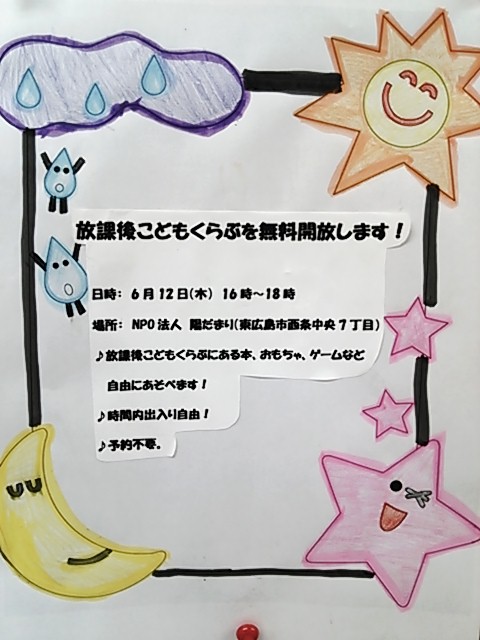 放課後こどもくらぶを無料開放します！
日時: 6月12日(木) 16時～18時
場所: NPO法人 陽だまり(東広島市西条中央7丁目)
♪放課後こどもくらぶにある本、おもちゃ、ゲームなど
自由にあそべます！
♪時間内出入り自由！
♪予約不要。